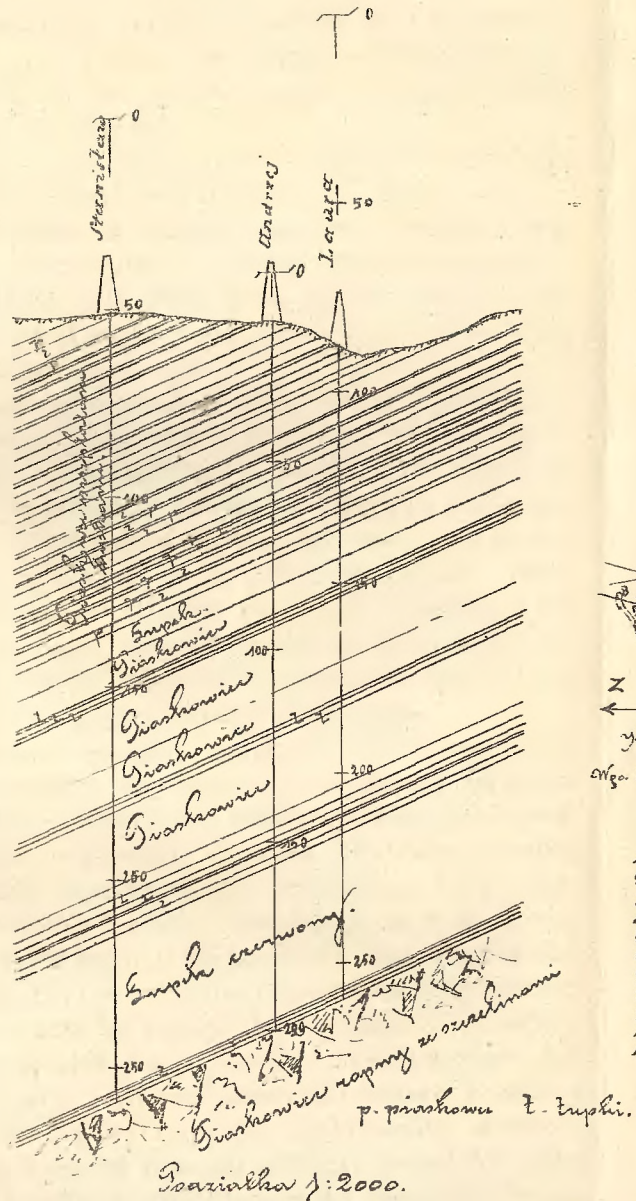 0
0
Stanisław
Andrzej
Laura
50
0
50
100
50
100
150
Łupek
Piaskowiec
100
150
Piaskowiec
Piaskowiec
200
Piaskowiec
150
250
Łupek czerwony
250
200
250
Piaskowiec ropny ze szczelinami
p. piaskowce Ł. Łupki.
Podziałka 1:2000.
Z